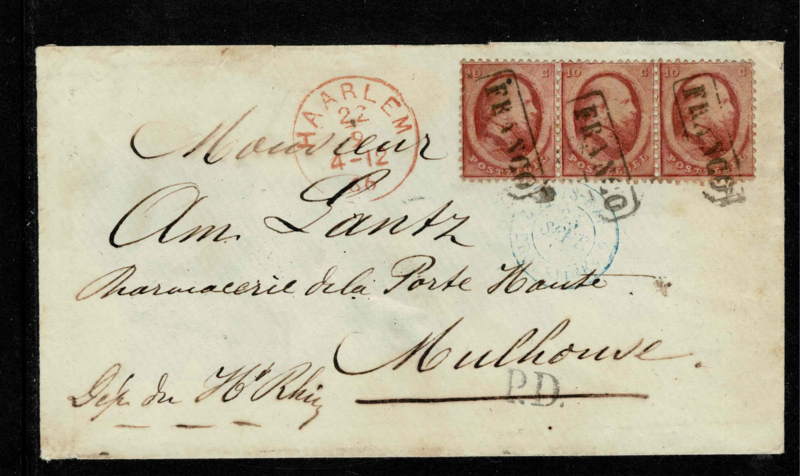 10 C 10 C 10 C
POSTZEGEL POSTZEGEL POSTZEGEL
FRANCO FRANCO FRANCO
HAARLEM
22
9
4-12
66
Monsieur
Am. Lantz
Pharmacerie de la Porte Haute
Mulhouse.
Dép. du Ht Rhin
P.D.